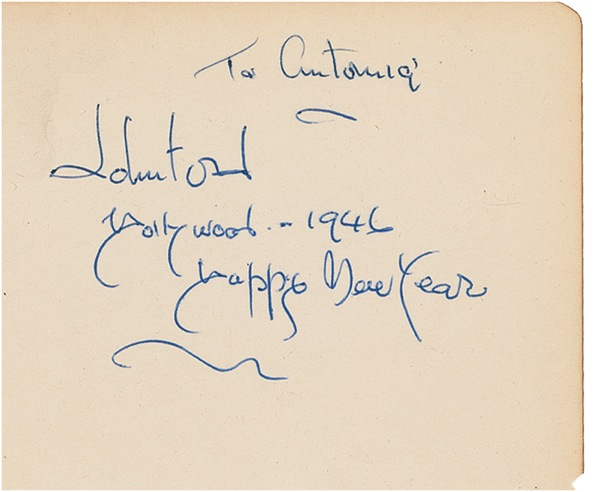 To Antonia
John Ford
Hollywood - 1946
Happy New Year